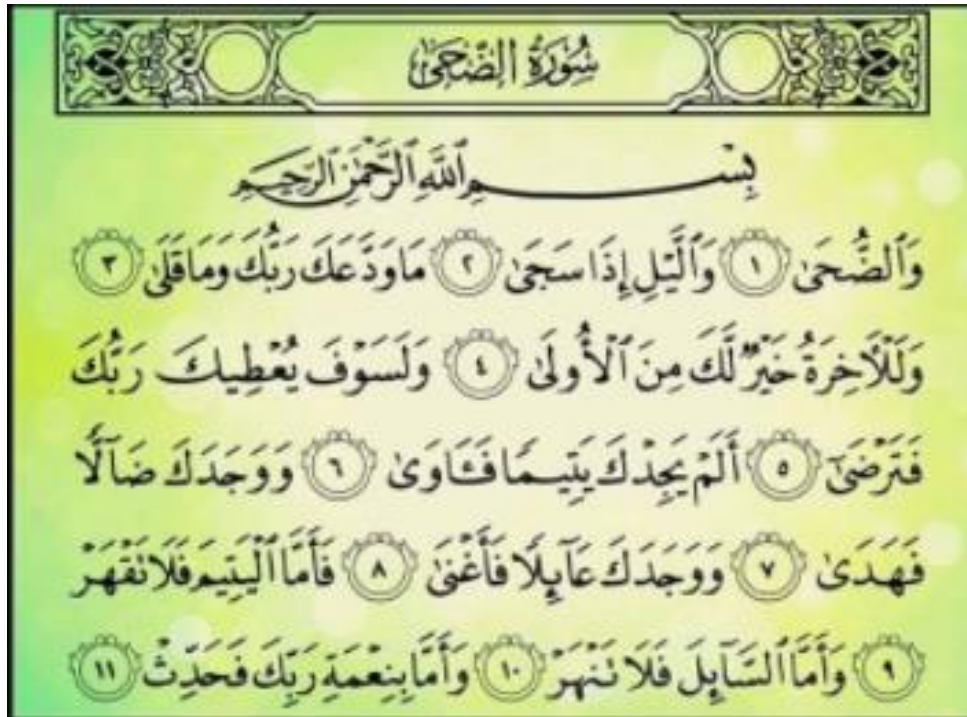 سُورَةُ الضُّحَىٰ
بِسْمِ ٱللَّهِ ٱلرَّحْمَٰنِ ٱلرَّحِيمِ
وَٱلضُّحَىٰ ١ وَٱلَّيْلِ إِذَا سَجَىٰ ٢ مَا وَدَّعَكَ رَبُّكَ وَمَا قَلَىٰ ٣
وَلَلْآخِرَةُ خَيْرٌ لَّكَ مِنَ ٱلْأُولَىٰ ٤ وَلَسَوْفَ يُعْطِيكَ رَبُّكَ
فَتَرْضَىٰٓ ٥ أَلَمْ يَجِدْكَ يَتِيمًا فَـَٔاوَىٰ ٦ وَوَجَدَكَ ضَآلًّا
فَهَدَىٰ ٧ وَوَجَدَكَ عَآئِلًا فَأَغْنَىٰ ٨ فَأَمَّا ٱلْيَتِيمَ فَلَا تَقْهَرْ
٩ وَأَمَّا ٱلسَّآئِلَ فَلَا تَنْهَرْ ١٠ وَأَمَّا بِنِعْمَةِ رَبِّكَ فَحَدِّثْ ١١